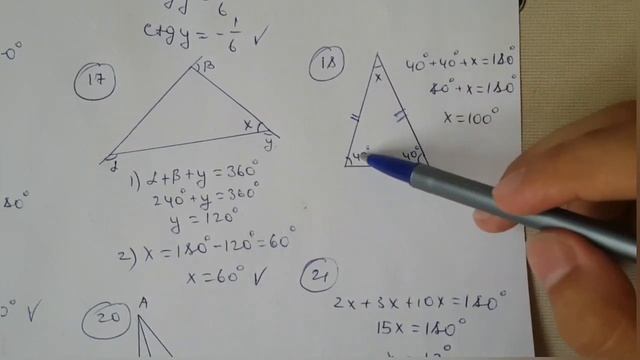 ctgy = -1/6 ✓
17
β
x
y
α
1) α+β+y=360°
240°+y=360°
y=120°
2) x=180°-120°=60°
x=60° ✓
18
x
40°
40°
40°+40°+x=180°
80°+x=180°
x=100°
20
A
21
2x+3x+10x=180°
15x=180°